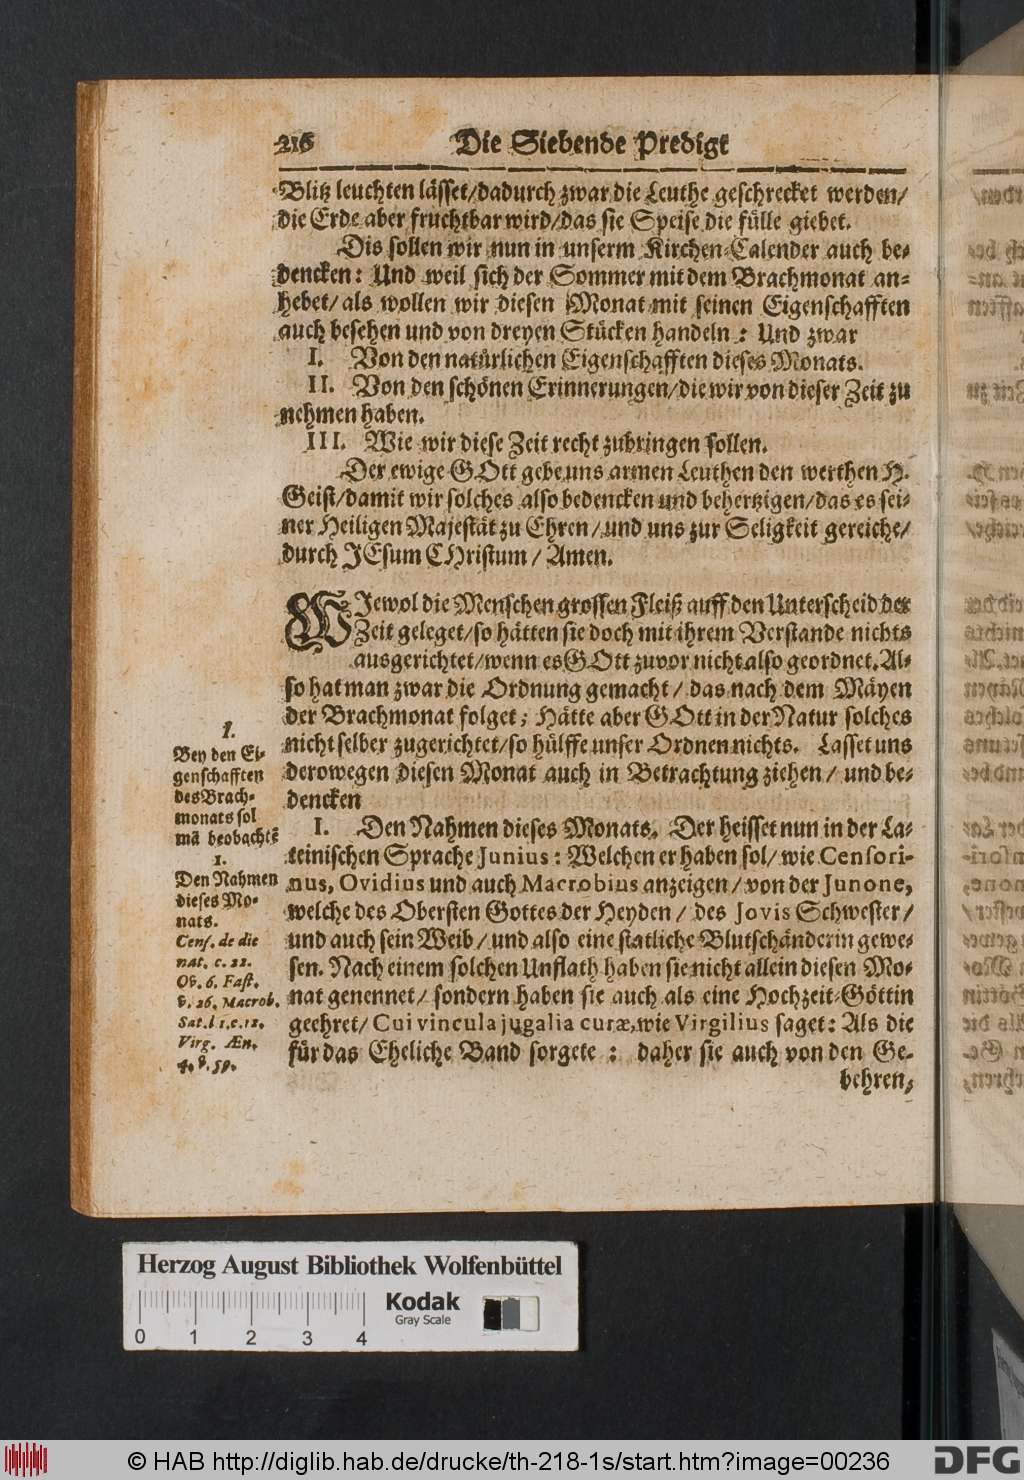 216 Die Siebende Predigt
Blitz leuchten lässet/dadurch zwar die Leuthe geschrecket werden/
die Erde aber fruchtbar wird/das sie Speise die fülle giebet.
Dis sollen wir nun in unserm Kirchen-Calender auch be-
dencken: Und weil sich der Sommer mit dem Brachmonat an-
hebet/als wollen wir diesen Monat mit seinen Eigenschafften
auch besehen und von dreyen Stücken handeln: Und zwar
I. Von den natürlichen Eigenschafften dieses Monats.
II. Von den schönen Erinnerungen/die wir von dieser Zeit zu
nehmen haben.
III. Wie wir diese Zeit recht zubringen sollen.
Der ewige GOtt gebe uns armen Leuthen den werthen H.
Geist/damit wir solches also bedencken und behertzigen/das es sei-
ner Heiligen Majestät zu Ehren/und uns zur Seligkeit gereiche/
durch JEsum CHristum/Amen.
WJewol die Menschen grossen Fleiß auff den Unterscheid der
Zeit geleget/so hätten sie doch mit ihrem Verstande nichts
ausgerichtet/wenn es GOtt zuvor nicht also geordnet. Al-
so hat man zwar die Ordnung gemacht/das nach dem Mäyen
der Brachmonat folget; Hätte aber GOtt in der Natur solches
nicht selber zugerichtet/so hülffe unser Ordnen nichts. Lasset uns
derowegen diesen Monat auch in Betrachtung ziehen/und be-
dencken
I. Den Nahmen dieses Monats. Der heisset nun in der La-
teinischen Sprache Junius: Welchen er haben sol/wie Censori-
nus, Ovidius und auch Macrobius anzeigen/von der Junone,
welche des Obersten Gottes der Heyden/des Jovis Schwester/
und auch sein Weib/und also eine statliche Blutschänderin gewe-
sen. Nach einem solchen Unflath haben sie nicht allein diesen Mo-
nat genennet/sondern haben sie auch als eine Hochzeit-Göttin
geehret/Cui vincula jugalia curæ, wie Virgilius saget: Als die
für das Eheliche Band sorgete: daher sie auch von den Ge-
behren,
I.
Bey den Ei-
genschafften
des Brach-
monats sol
mā beobachtē
1.
Den Nahmen
dieses Mo-
nats.
Cens. de die
nat. c. 22.
Ov. 6. Fast.
v. 26. Macrob.
Sat. l 1. c. 12.
Virg. Æn.
4. v. 59.
Herzog August Bibliothek Wolfenbüttel
0 1 2 3 4
Kodak
Gray Scale
© HAB http://diglib.hab.de/drucke/th-218-1s/start.htm?image=00236
DFG